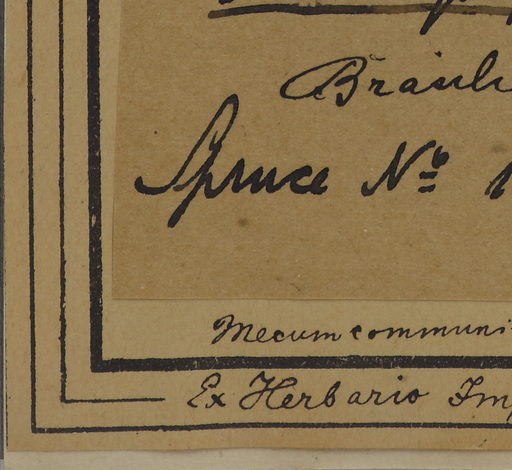 Brasili
Spruce Nº 1
Mecum communi
Ex Herbario Imp